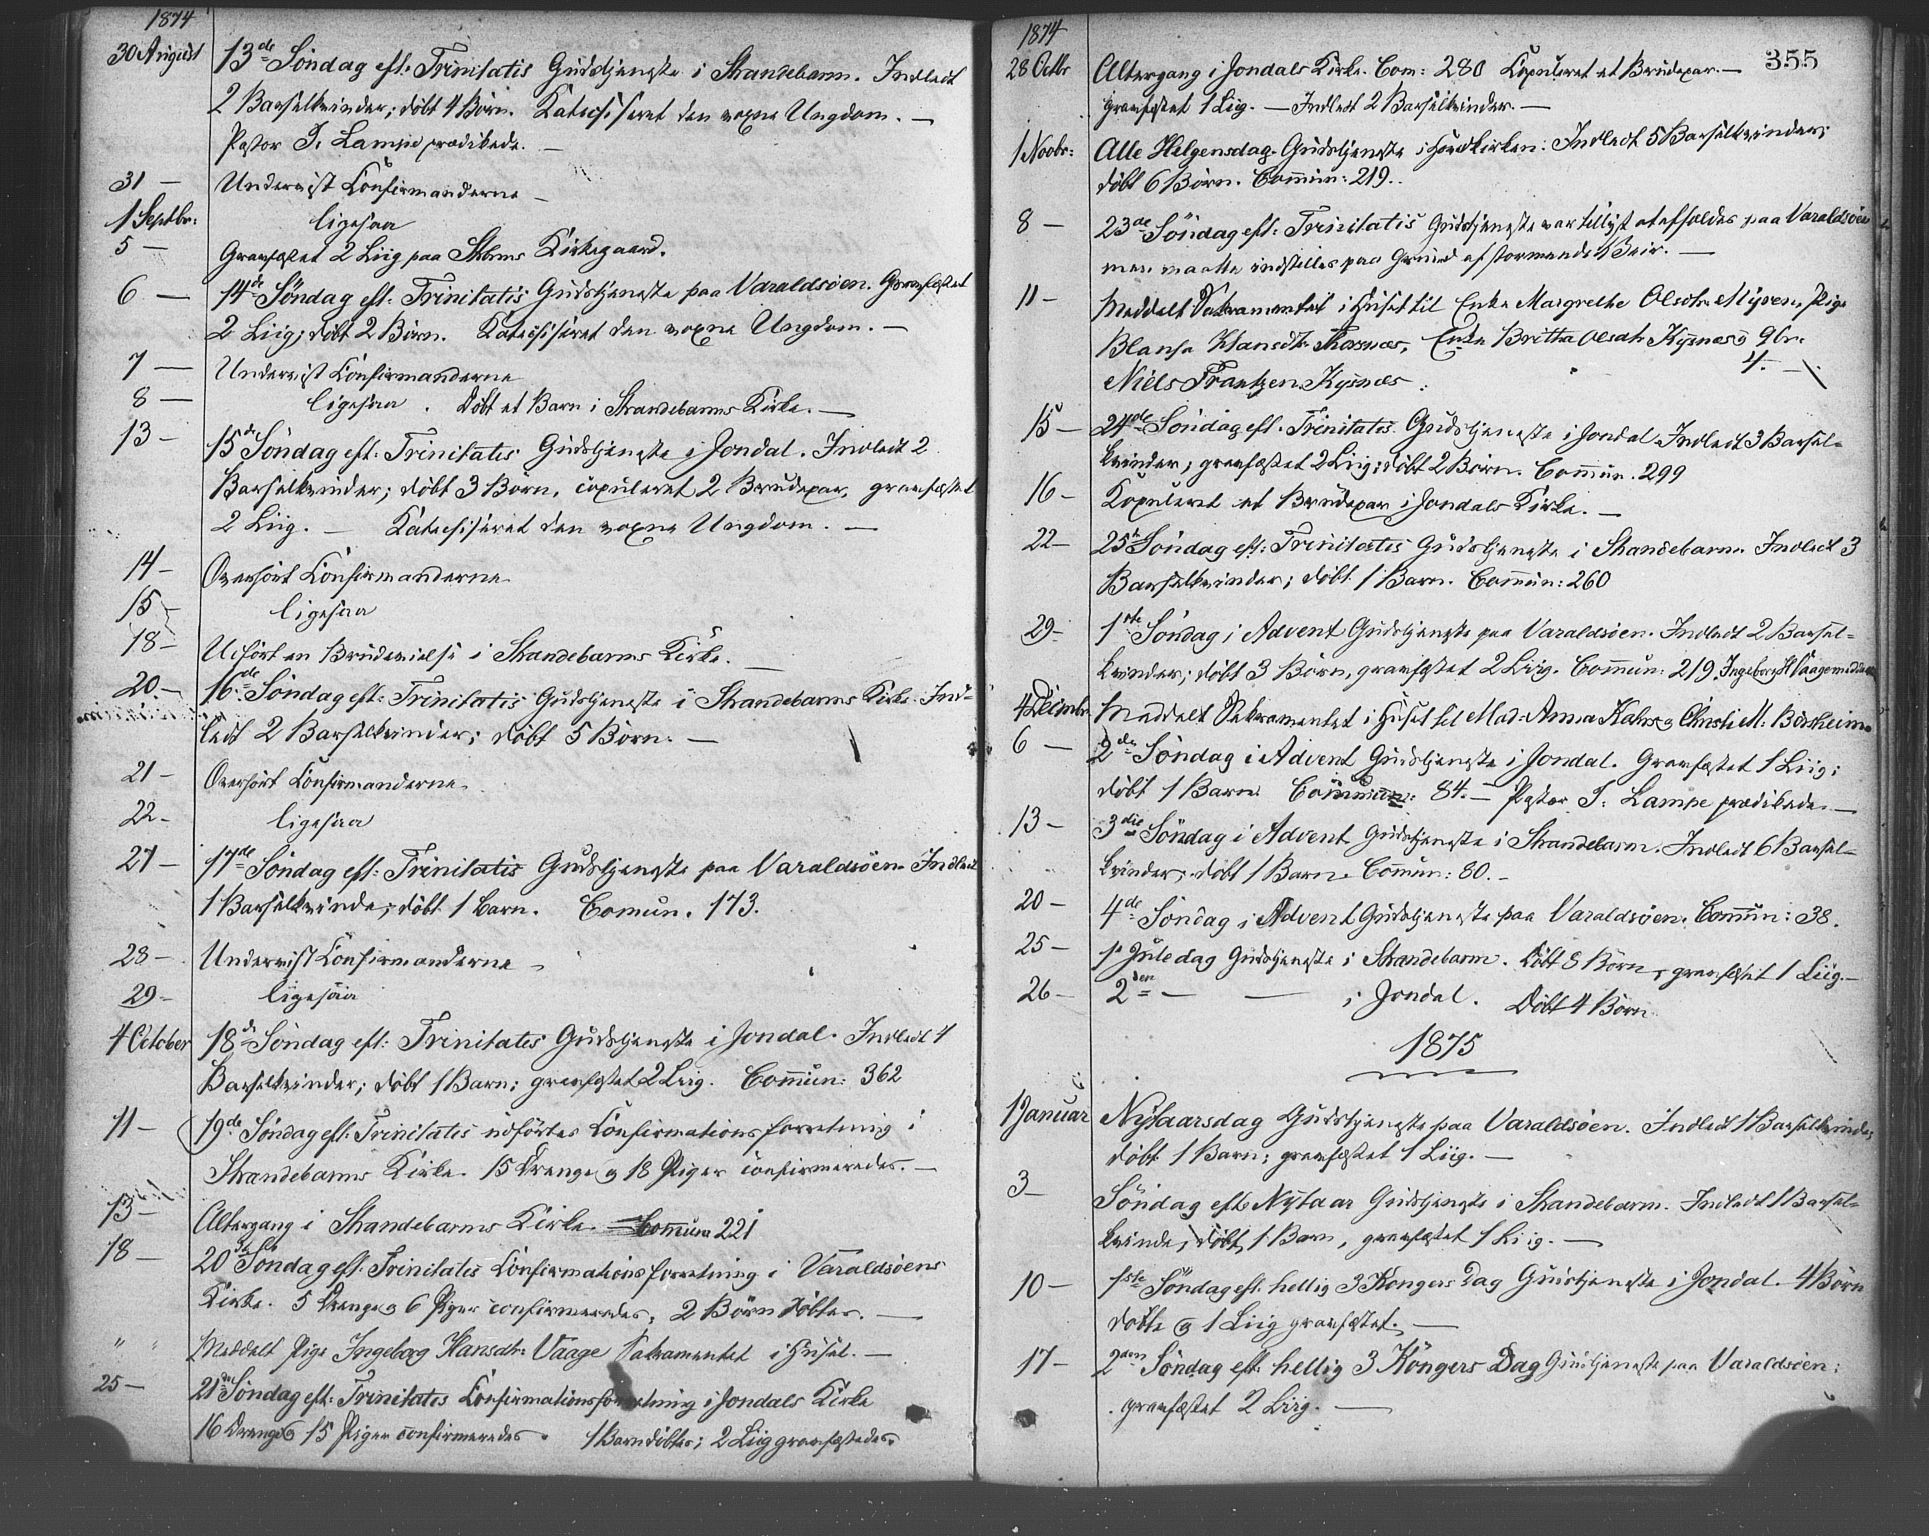 1874
30 August 13de Søndag eft. Trinitatis Gudstjeneste i Strandebarm. Indledt
2 Barselkvinder; døbt 4 Børn. Katechiseret den voxne Ungdom. —
Pastor J. Lampe prædikede. —
31 — Underviist Confirmanderne —
1 Septbr: ligesaa
5 — Græsfæstet 2 Liig paa Stbrms Kirkegaard.
6 — 14de Søndag eft. Trinitatis Gudstjeneste paa Varaldsøen. Græsfæstet
2 Liig; døbt 2 Børn. Katechiseret den voxne Ungdom. —
7 — Underviist Confirmanderne
8 — ligesaa. Døbt et Barn i Strandebarms Kirke. —
13 — 15de Søndag eft. Trinitatis Gudstjeneste i Jondal. Indledt 2
Barselkvinder; døbt 3 Børn, copuleret 2 Brudepar, græsfæstet
2 Liig. — Katechiseret den voxne Ungdom. —
14 — Overhørt Confirmanderne
15 — ligesaa
18 — Udført en Brudevielse i Strandebarms Kirke. —
20. — 16de Søndag eft: Trinitatis Gudstjeneste i Strandebarms Kirke. Ind-
ledt 2 Barselkvinder; døbt 5 Børn. —
21 — Overhørt Confirmanderne
22 — ligesaa
27 — 17de Søndag eft: Trinitatis Gudstjeneste paa Varaldsøen. Indledt
1 Barselkvinde; døbt 1 Barn. Comun. 173.
28 — Underviist Confirmanderne —
29 — ligesaa
4 October 18de Søndag eft: Trinitatis Gudstjeneste i Jondal. Indledt 4
Barselkvinder; døbt 1 Barn; græsfæstet 2 Liig. Comun: 362
11 — 19de Søndag eft: Trinitatis udførtes Confirmationsforretning i
Strandebarms Kirke. 15 Drenge og 18 Piger confirmeredes. —
13 — Altergang i Strandebarms Kirke — Commun 221
18 — 20de Søndag eft. Trinitatis Confirmationsforretning i Varaldsøens
Kirke. 5 Drenge og 6 Piger confirmeredes, 2 Børn døbtes. —
" " Meddelt Pige Ingeborg Hansdt: Vaage Sakramentet i Huset. —
25 — 21de Søndag eft: Trinitatis Confirmationsforretning i Jondals Kirke
16 Drenge og 15 Piger confirmeredes. 1 Barn døbtes; 2 Liig græsfæstedes.
1874
355
28 Octbr Altergang i Jondals Kirke. Com: 280 Kopuleret et Brudepar. —
græsfæstet 1 Liig. — Indledt 2 Barselkvinder. —
1 Novbr: Alle Helgensdag Gudstjeneste i Hovedkirken: Indledt 5 Barselkvinder;
døbt 6 Børn. Commun: 219.
8 — 23de Søndag eft: Trinitatis Gudstjeneste var tillyst at afholdes paa Varaldsøen
men maatte indstilles paa Grund af stormende Veir. —
11 — Meddelt Sakramentet i Huset til Enke Margrethe Olsdtr Myren, Pige
Hansdtr. Enke Britha Olsdtr Kysnes og Gbr.
Niels Frantzen Kysnæs. 4. —
15 — 24de Søndag eft. Trinitatis Gudstjeneste i Jondal. Indledt 3 Barsel-
kvinder; græsfæstet 2 Liig; døbt 2 Børn. Commun. 299
16 — Kopuleret et Brudepar i Jondals Kirke. —
22 — 25de Søndag eft: Trinitatis Gudstjeneste i Strandebarm. Indledt 3
Barselkvinder; døbt 1 Barn. Commun: 260
29 — 1ste Søndag i Advent Gudstjeneste paa Varaldsøen. Indledt 2 Barsel-
kvinder; døbt 3 Børn, græsfæstet 2 Liig. Commun: 219. Ingeborg H Vaage
4 Decembr Meddelt Sakramentet i Huset til Mad: Anna Kahrs og Christi M: Børsheim
6 — 2den Søndag i Advent Gudstjeneste i Jondal. Græsfæstet 1 Liig;
døbt 1 Barn. Commun: 84. — Pastor J: Lampe prædikede. —
13 — 3die Søndag i Advent Gudstjeneste i Strandebarm. Indledt 6 Barsel-
kvinder; døbt 1 Barn. Commun: 80. —
20 — 4de Søndag i Advent Gudstjeneste paa Varaldsøen. Commun: 38.
25 — 1e Juledag Gudstjeneste i Strandebarm. Døbt 8 Børn, græsfæstet 1 Liig. —
26 — 2den — — i Jondal. Døbt 4 Børn
1875
1 Januar Nytaarsdag Gudstjeneste paa Varaldsøen. Indledt 1 Barselkvinde;
døbt 1 Barn; græsfæstet 1 Liig. —
3 — Søndag eft. Nytaar Gudstjeneste i Strandebarm. Indledt 1 Barsel-
kvinde, døbt 1 Barn, græsfæstet 1 Liig. —
10 — 1ste Søndag eft. hellig 3 Kongers Dag Gudstjeneste i Jondal. 4 Børn
døbte og 1 Liig græsfæstet. —
17 — 2den Søndag eft. hellig 3 Kongers Dag Gudstjeneste paa Varaldsøen:
græsfæstet 2 Liig. —